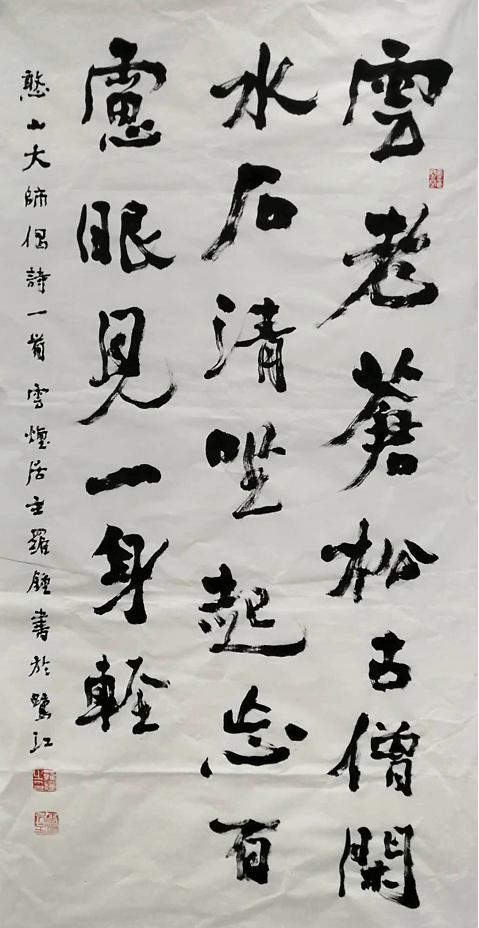 雲老蒼松古僧閑
水石清坐起忘百
慮眼見一身輕
憨山大師偈詩一首雲煙居主羅鍾書於鷺江